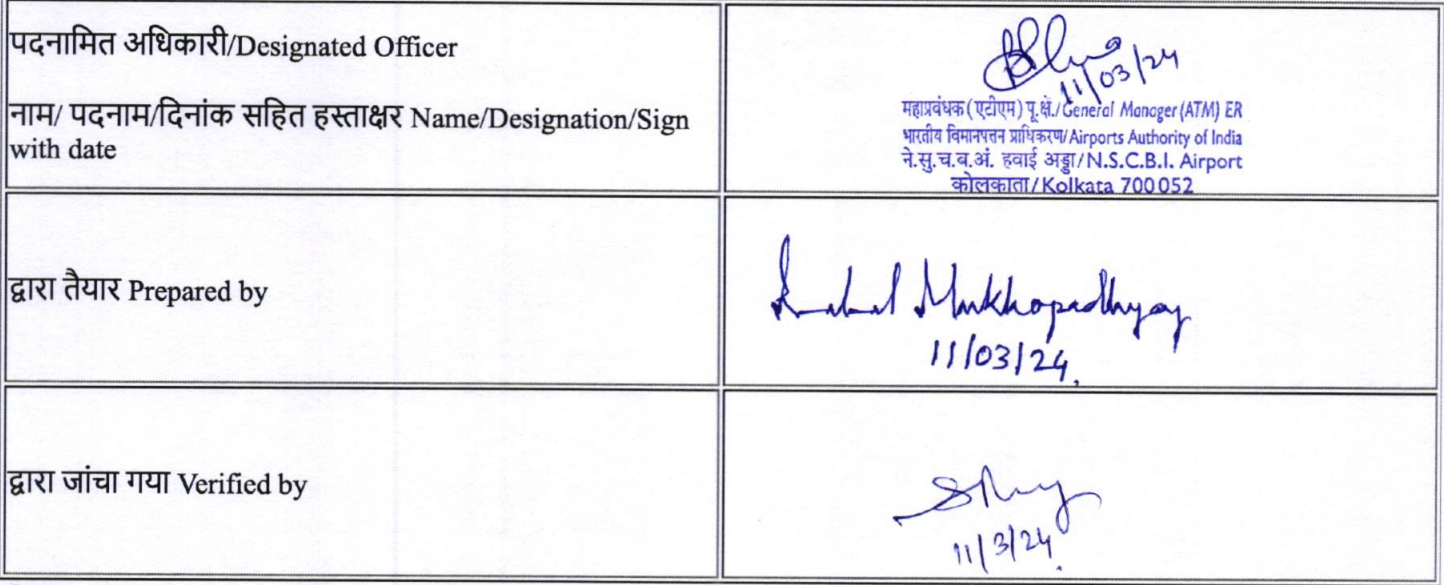 पदनामित अधिकारी/Designated Officer
नाम/ पदनाम/दिनांक सहित हस्ताक्षर Name/Designation/Sign
with date
11/03/24
महाप्रबंधक (एटीएम) पू.क्षे./General Manager (ATM) ER
भारतीय विमानपत्तन प्राधिकरण/Airports Authority of India
ने.सु.च.ब.अं. हवाई अड्डा/N.S.C.B.I. Airport
कोलकाता/Kolkata 700052
द्वारा तैयार Prepared by
Mukhopadhyay
11/03/24
द्वारा जांचा गया Verified by
11/3/24